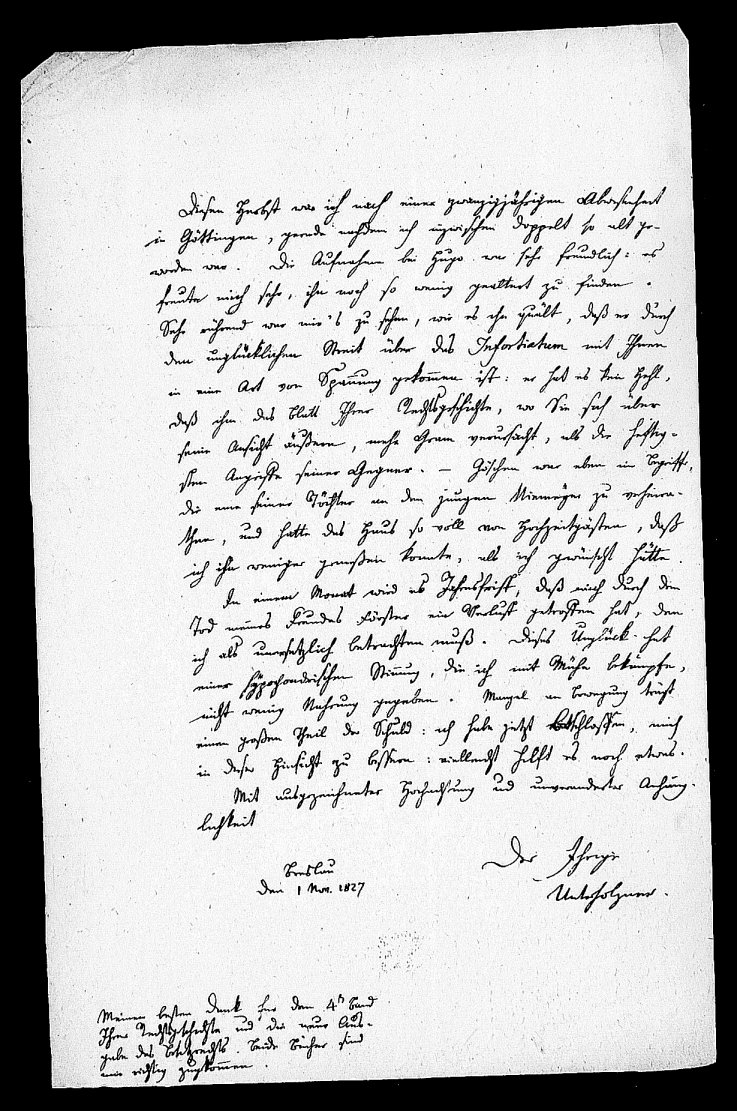 Diesen Herbst war ich nach einer zwanzigjährigen Abwesenheit
in Göttingen, gerade nachdem ich inzwischen doppelt so alt ge-
worden war. Die Aufnahme bei Hugo war sehr freundlich: es
freute mich sehr, ihn noch so wenig gealtert zu finden.
Sehr rührend war mir's zu sehen, wie es ihn quält, daß er durch
den unglücklichen Streit über das Infortiatum mit Ihnen
in eine Art von Spannung gekommen ist: er hat es kein Hehl,
daß ihm das Blatt Ihrer Rechtsgeschichte, wo Sie sich über
seine Ansicht äußern, mehr Gram verursacht, als die heftig-
sten Angriffe seiner Gegner. – Göschen war eben im Begriff,
die eine seiner Töchter an den jungen Niemeyer zu verheira-
then, und hatte das Haus so voll von Hochzeitgästen, daß
ich ihn weniger genießen konnte, als ich gewünscht hätte.
In einem Monat wird es Jahresfrist, daß mich durch den
Tod meines Freundes Förster ein Verlust getroffen hat, den
ich als unersetzlich betrachten muß. Dieses Unglück hat
einer hypochondrischen Stimmung, die ich mit Mühe bekämpfe,
nicht wenig Nahrung gegeben. Mangel an Bewegung trägt
einen großen Theil der Schuld: ich habe jetzt beschlossen, mich
in dieser Hinsicht zu bessern: vielleicht hilft es noch etwas.
Mit ausgezeichneter Hochachtung und unveränderter Anhäng-
lichkeit
Der Ihrige
Breslau
den 1 Nov. 1827
Unterholzner.
Meinen besten Dank für den 4n Band
Ihrer Rechtsgeschichte und die neue Aus-
gabe des Besitzrechts. Beide Bücher sind
mir richtig zugekommen.